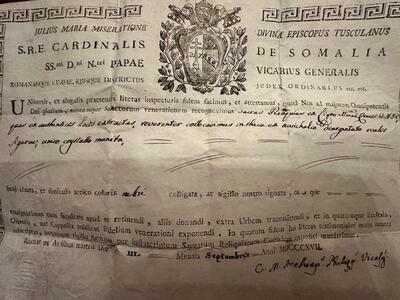 JULIUS MARIA MISERATIONE
DIVINA EPISCOPUS TUSCULANUS
S.R.E CARDINALIS
DE SOMALIA
SS.mi D.ni N.tri PAPAE
VICARIUS GENERALIS
ROMANAEQUE CURIAE, EJUSQUE DISTRICTUS
JUDEX ORDINARIUS etc. etc.
Universis, et singulis praesentes literas inspecturis fidem facimus, et attestamur, quod Nos ad majorem Omnipotentis
Dei gloriam, suorumque Sanctorum venerationem recognovimus sacras Reliquias ex
quas ex authenticis Locis extractas, reverenter collocavimus in theca ex ovalis
figurae, unico cristallo munita,
bene clausa, et funiculo serico coloris rubri colligata, et sigillo nostro signata,
facultate apud se retinendi, aliis donandi, extra Urbem transmittendi, et in quacumque Ecclesia,
aut Cappella publicae Fidelium venerationi exponendi. In quorum fidem has literas testimoniales
nostro sigillo firmatas per infrascriptum Sacrarum Reliquiarum Custodem expediri mandavimus.
Romae ex Aedibus nostris Die III. Mensis Septembris Anni MDCCCXVII.